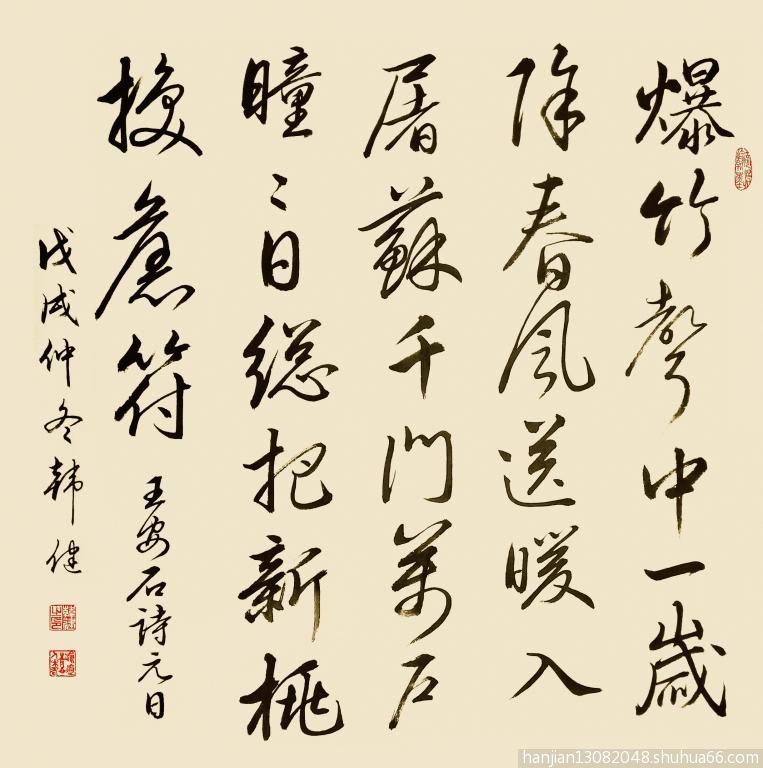 爆竹聲中一歲
除春風送暖入
屠蘇千門萬户
曈〻日總把新桃
換舊符
王安石詩元日
戊戌仲冬韓健
hanjian13082048.shuhua66.com